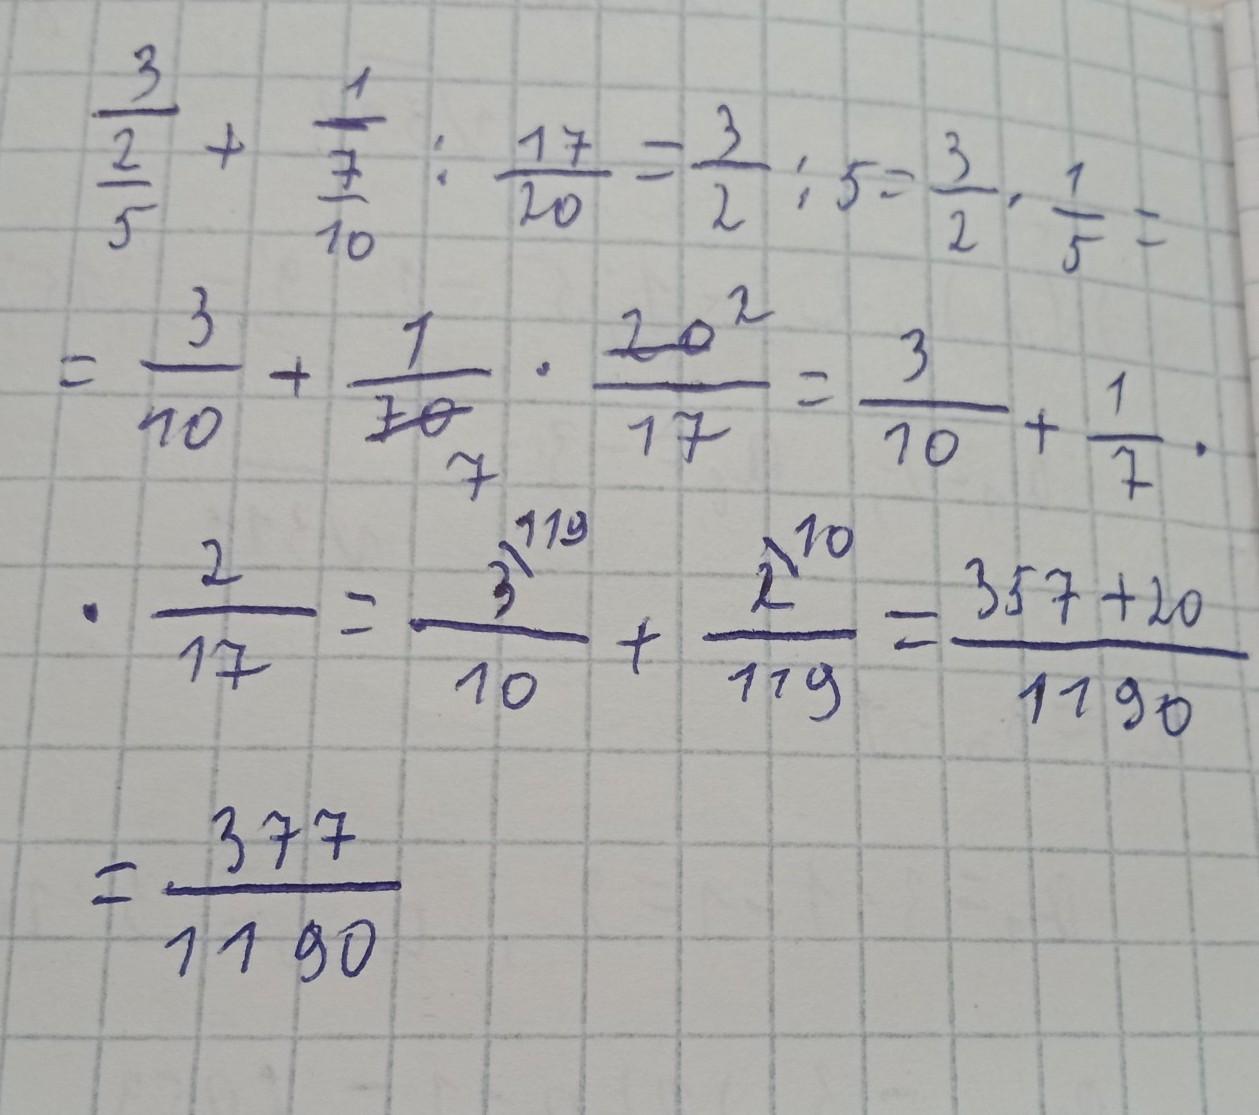 3/(2/5) + 1/(7/10) : 17/20 = 3/2 : 5 = 3/2 · 1/5 =
= 3/10 + 1/70 7 · 20 2/17 = 3/10 + 1/7 ·
· 2/17 = 3\119/10 + 2\10/119 = 357+20/1190
= 377/1190